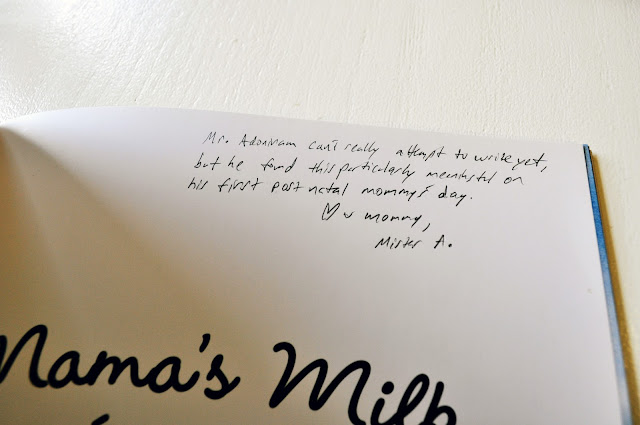 Mr. Adoniram can't really attempt to write yet,
but he found this particularly meaningful on
his first post natal mommy's day.
♡ u mommy,
Mister A.
Mama's Milk